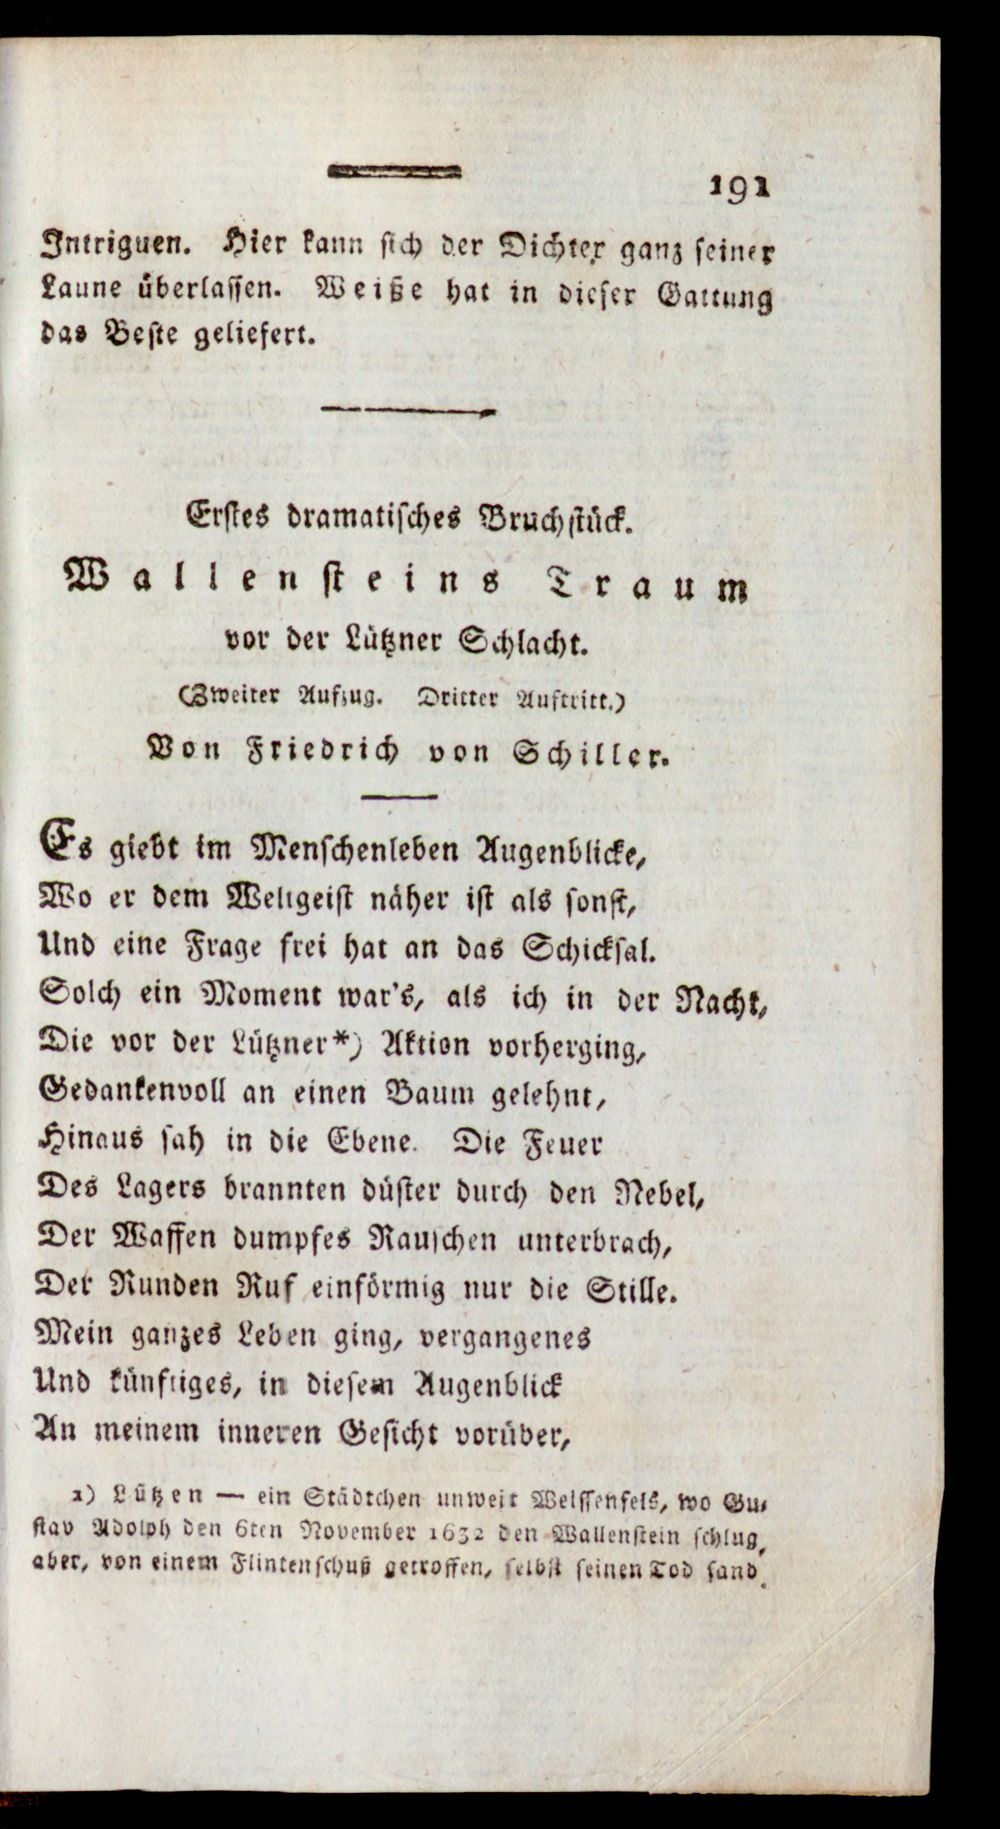 191
Intriguen. Hier kann sich der Dichter ganz seiner
Laune überlassen. Weiße hat in dieser Gattung
das Beste geliefert.
Erstes dramatisches Bruchstück.
Wallensteins Traum
vor der Lützner Schlacht.
(Zweiter Aufzug. Dritter Auftritt.)
Von Friedrich von Schiller.
Es giebt im Menschenleben Augenblicke,
Wo er dem Weltgeist näher ist als sonst,
Und eine Frage frei hat an das Schicksal.
Solch ein Moment war's, als ich in der Nacht,
Die vor der Lützner*) Aktion vorherging,
Gedankenvoll an einen Baum gelehnt,
Hinaus sah in die Ebene. Die Feuer
Des Lagers brannten düster durch den Nebel,
Der Waffen dumpfes Rauschen unterbrach,
Der Runden Ruf einförmig nur die Stille.
Mein ganzes Leben ging, vergangenes
Und künftiges, in diesem Augenblick
An meinem inneren Gesicht vorüber,
1) Lützen — ein Städtchen unweit Weissenfels, wo Gu-
stav Adolph den 6ten November 1632 den Wallenstein schlug,
aber, von einem Flintenschuß getroffen, selbst seinen Tod fand.